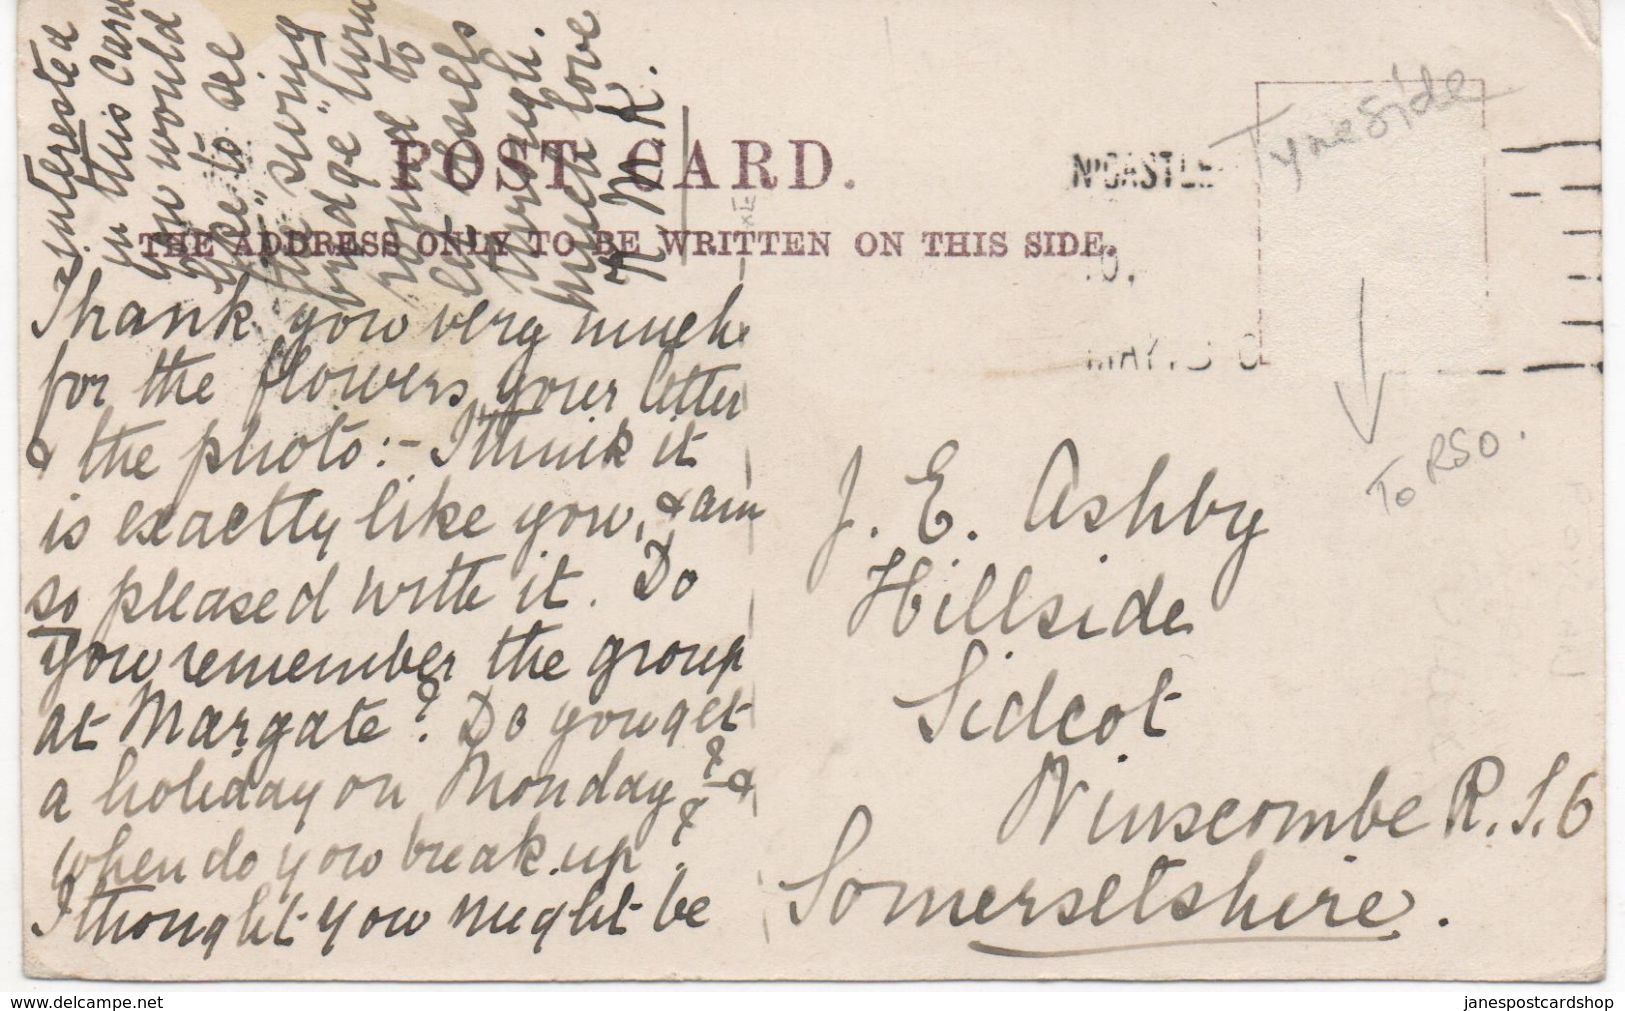 POST CARD.
THE ADDRESS ONLY TO BE WRITTEN ON THIS SIDE.
Thank you very much
for the flowers, your letter
& the photo:- I think it
is exactly like you, & am
so pleased with it. Do
you remember the group
at Margate? Do you get
a holiday on Monday? &
when do you break up?
I thought you might be
interested
in this card
you would
like to see
the "swing
bridge" turn
round to
let vessels
through.
much love
M.K.
J. E. Ashby
Hillside
Sidcot
Winscombe R.S.O
Somersetshire.
N'CASTLE
MAY.
Tyneside
To RSO.
delcampe.net
janespostcardshop